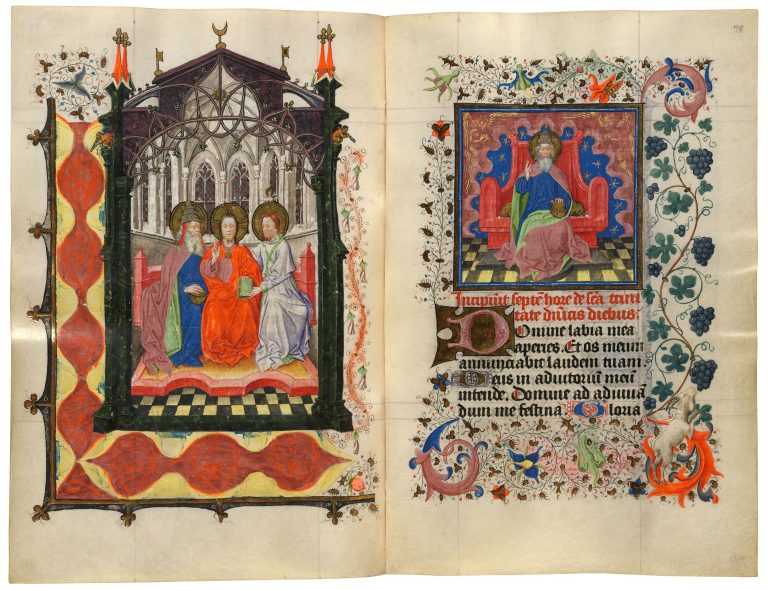 78
Incipiūt septē hore de scā trini
tate dn̄icis diebus:
Domine labia mea
aperies. Et os meum
annunciabit laudem tuam
Deus in adiutoriū meū
intende. Domine ad adiuuā
dum me festina Gloria